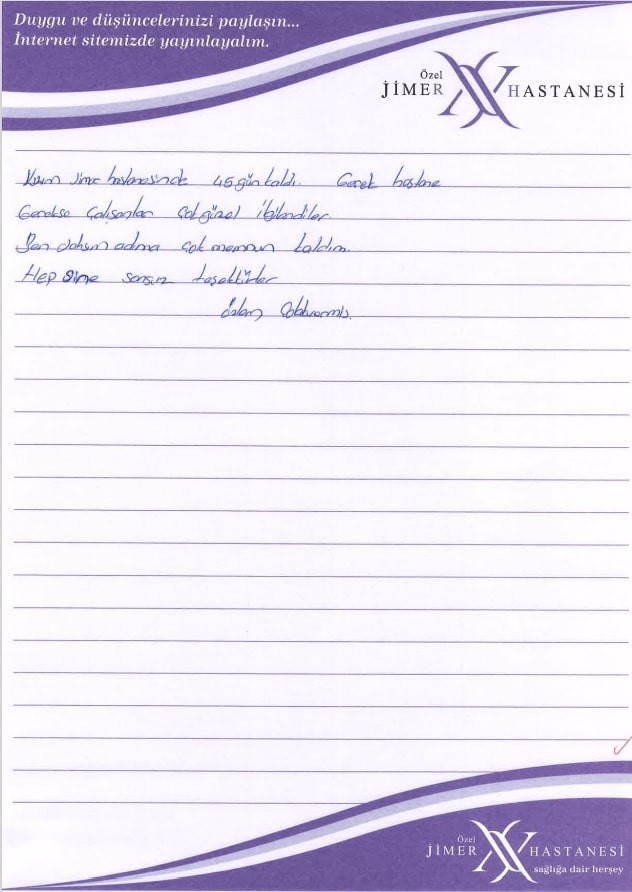 Duygu ve düşüncelerinizi paylaşın...
İnternet sitemizde yayınlayalım.
Özel
JİMER HASTANESİ
Kızım Jimer hastanesinde 45 gün kaldı. Gerek hastane
Gerekse Çalışanlar Çok güzel ilgilendiler.
Ben şahsım adıma çok memnun kaldım.
Hepsine sonsuz teşekkürler
Özlem
Özel
JİMER HASTANESİ
sağlığa dair herşey